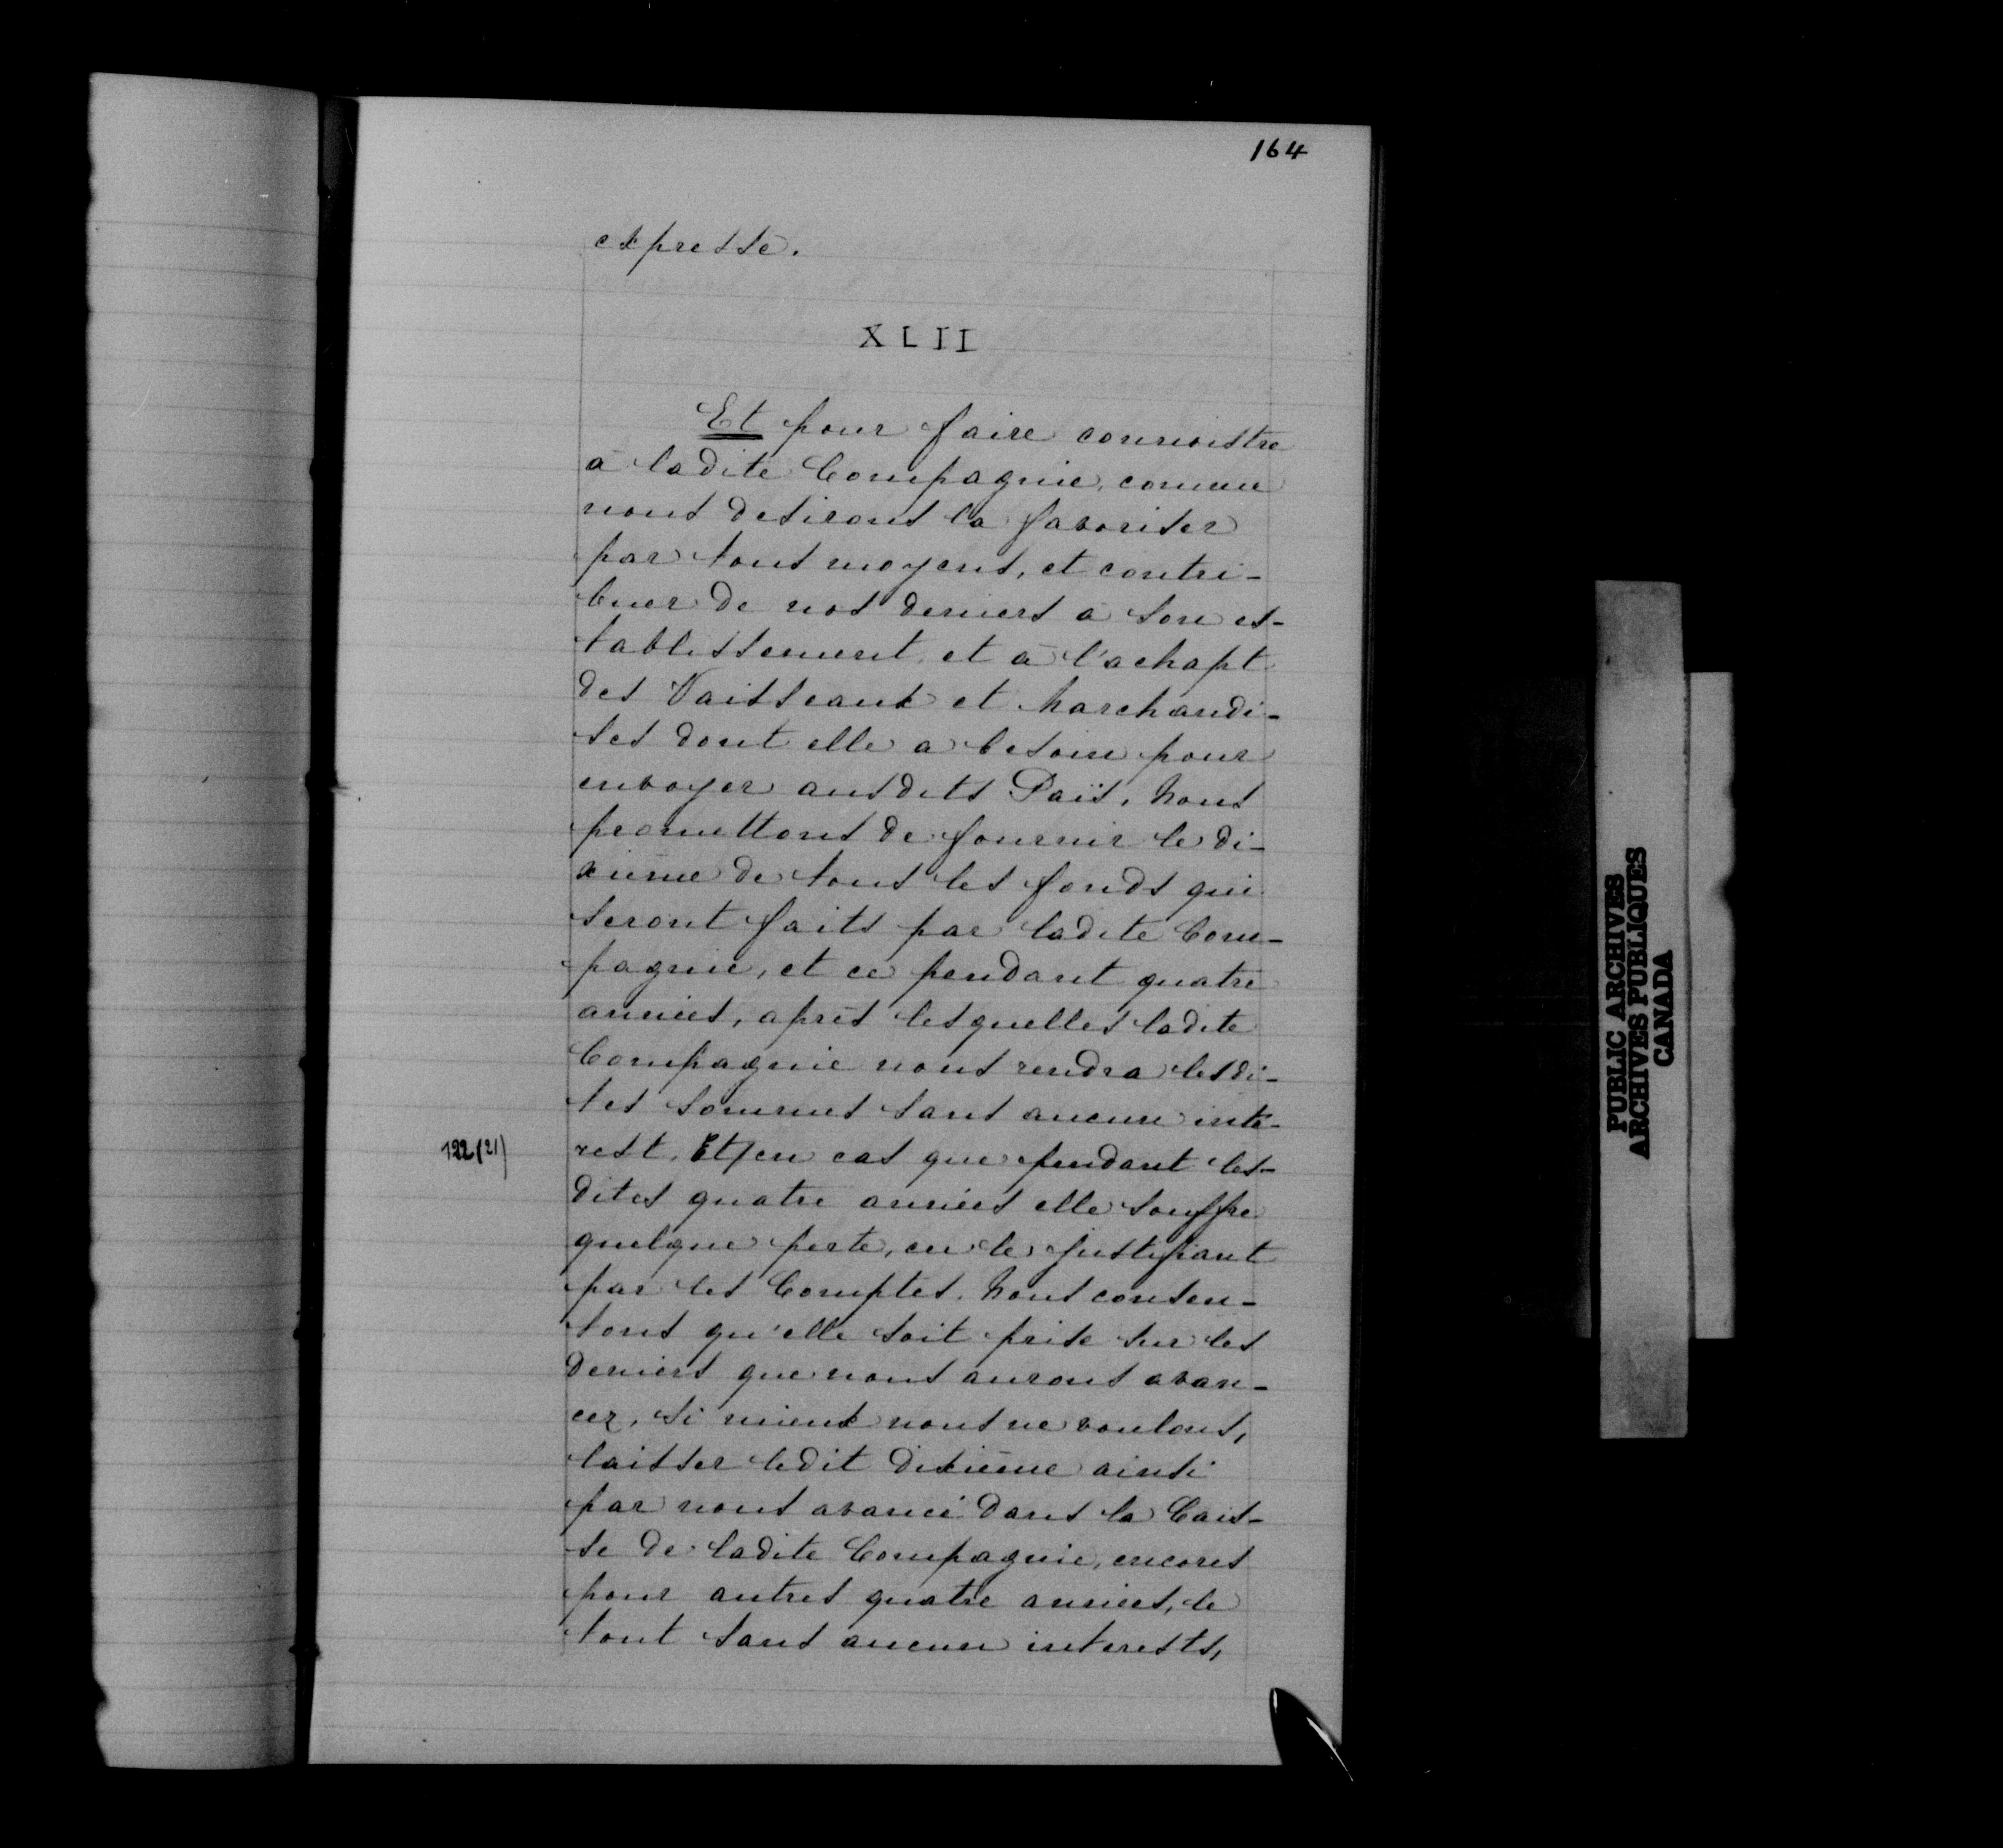 164
expresse.
XLII
Et pour faire connoistre
à ladite Compagnie, comme
nous desirons la favoriser
par tous moyens, et contri-
buer de nos deniers à son es-
tablissement, et à l'achapt
des Vaisseaux et Marchandi-
ses dont elle a besoin pour
envoyer ausdits Païs, Nous
promettons de fournir le di-
xième de tous les fonds qui
seront faits par ladite Com-
pagnie, et ce pendant quatre
années, après lesquelles ladite
Compagnie nous rendra lesdi-
tes sommes sans aucun inte-
rest, Et/en cas que pendant les-
dites quatre années elle souffre
quelque perte, en le justifiant
par les Comptes, Nous consen-
tons qu'elle soit prise sur les
deniers que nous aurons avan-
cez, si mieux nous ne voulons,
laisser ledit dixième ainsi
par nous avancé dans la Cais-
se de ladite Compagnie, encores
pour autres quatre années, le
tout sans aucun interests,
122 (21)
PUBLIC ARCHIVES
ARCHIVES PUBLIQUES
CANADA